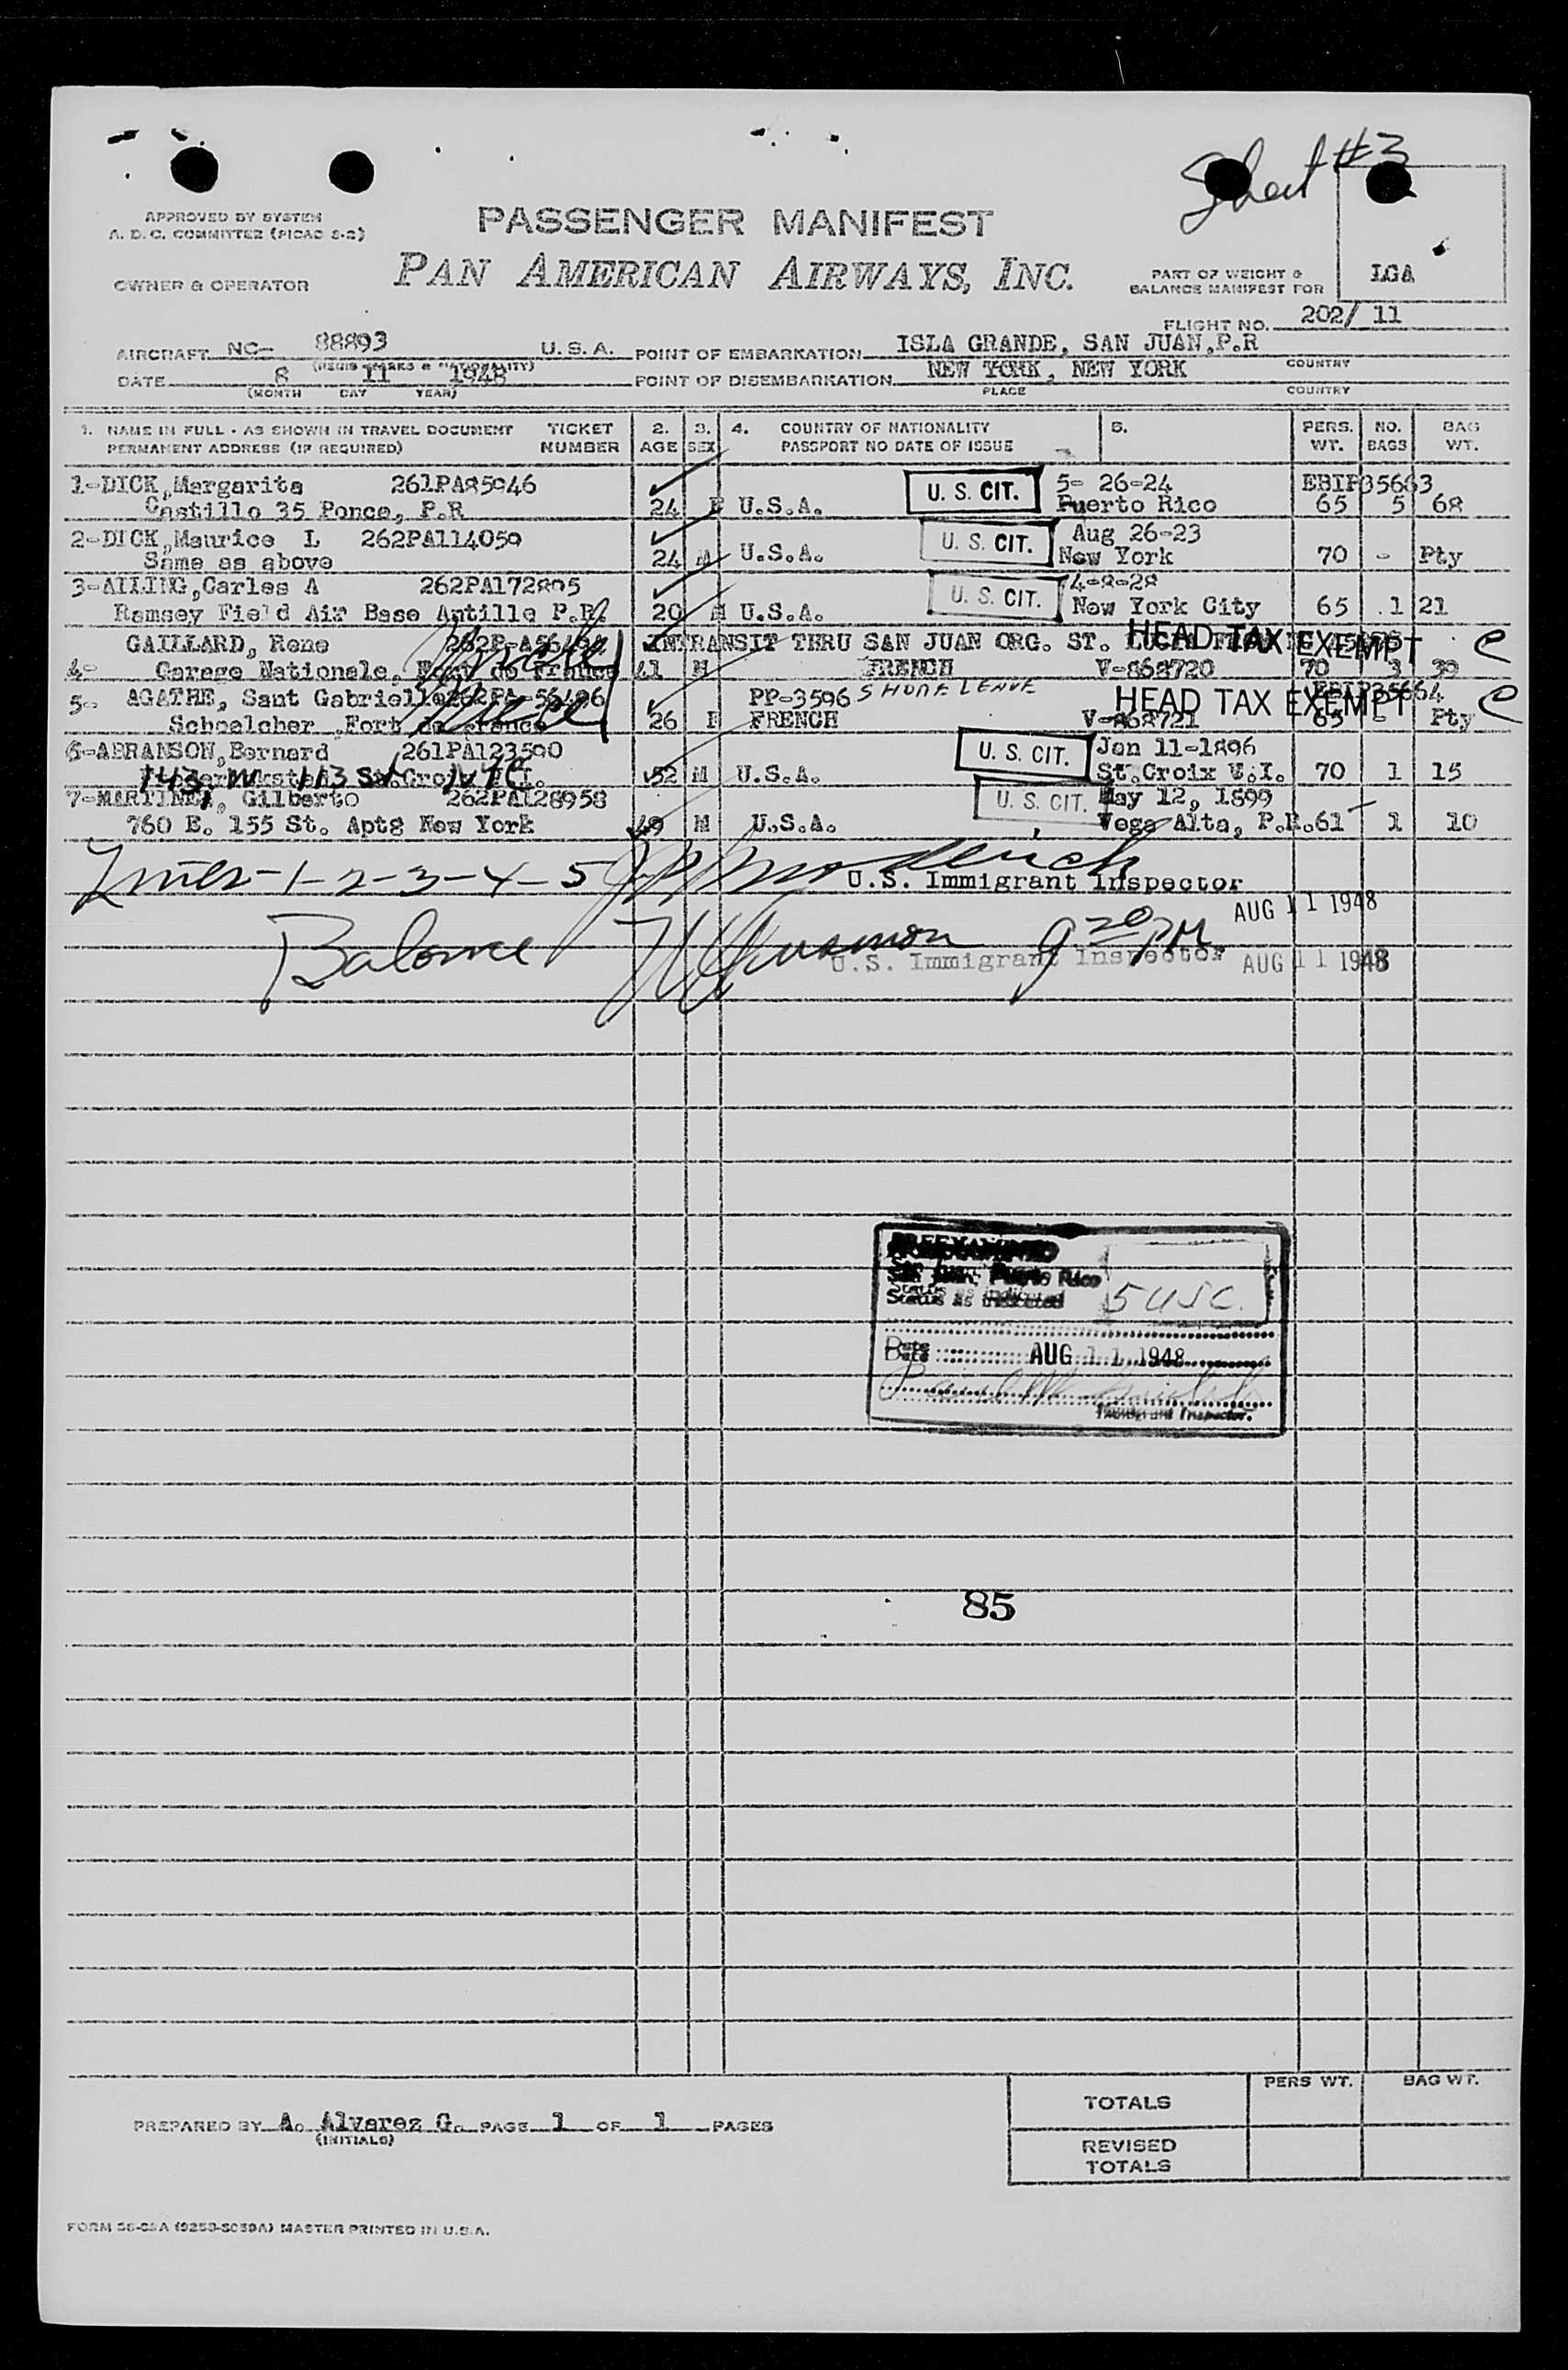 Sheet #3
APPROVED BY SYSTEM
A. D. C. COMMITTEE (PICAO 2-2)
PASSENGER MANIFEST
OWNER & OPERATOR
PAN AMERICAN AIRWAYS, INC.
PART OF WEIGHT &
BALANCE MANIFEST FOR
LGA
FLIGHT NO. 202/ 11
AIRCRAFT NC- 88893 U. S. A. POINT OF EMBARKATION ISLA GRANDE, SAN JUAN,P.R
COUNTRY
DATE 8 11 1948 POINT OF DISEMBARKATION NEW YORK, NEW YORK
(MONTH DAY YEAR) PLACE COUNTRY
1. NAME IN FULL - AS SHOWN IN TRAVEL DOCUMENT TICKET 2. 3. 4. COUNTRY OF NATIONALITY 5. PERS. NO. BAG
PERMANENT ADDRESS (IF REQUIRED) NUMBER AGE SEX PASSPORT NO DATE OF ISSUE WT. BAGS WT.
1-DICK,Margarita 261PA85946 U. S. CIT. 5- 26-24 EBIP35663
Castillo 35 Ponce, P.R 24 F U.S.A. Puerto Rico 65 5 68
2-DICK,Maurice L 262PA114059 U. S. CIT. Aug 26-23
Same as above 24 M U.S.A. New York 70 - Pty
3-AILING,Carles A 262PA172805 U. S. CIT. 4-8-28
Ramsey Field Air Base Antille P.R. 20 M U.S.A. New York City 65 1 21
GAILLARD, Rene INTRANSIT THRU SAN JUAN ORG. ST. HEAD TAX EXEMPT C
4- Garage Nationale, Fort de France 41 M FRENCH V-868720 70 3 39
5- AGATHE, Sant Gabrielle 262PA-56496 PP-3596 SHORE LEAVE HEAD TAX EXEMPT C
Schoelcher ,Fort de France 26 F FRENCH V-868721 65 - Pty
6-ABRAMSON,Bernard 261PA123590 U. S. CIT. Jan 11-1896
143, W 113 St. NYC. 52 M U.S.A. St.Croix V.I. 70 1 15
7-MARTINEZ, Gilberto 262PA128958 U. S. CIT. May 12, 1899
760 E. 155 St. Apt8 New York 49 M U.S.A. Vega Alta, P.R. 61 1 10
Lines-1-2-3-4-5
U.S. Immigrant Inspector
AUG 11 1948
Balance 9 20 PM
U.S. Immigrant Inspector AUG 11 1948
San Juan, Puerto Rico
Status as indicated 5 USC.
Date AUG 11 1948
Immigrant Inspector.
85
PERS WT. BAG WT.
TOTALS
PREPARED BY A. Alvarez G. PAGE 1 OF 1 PAGES
(INITIALS)
REVISED
TOTALS
FORM 56-03A (9253-S039A) MASTER PRINTED IN U.S.A.